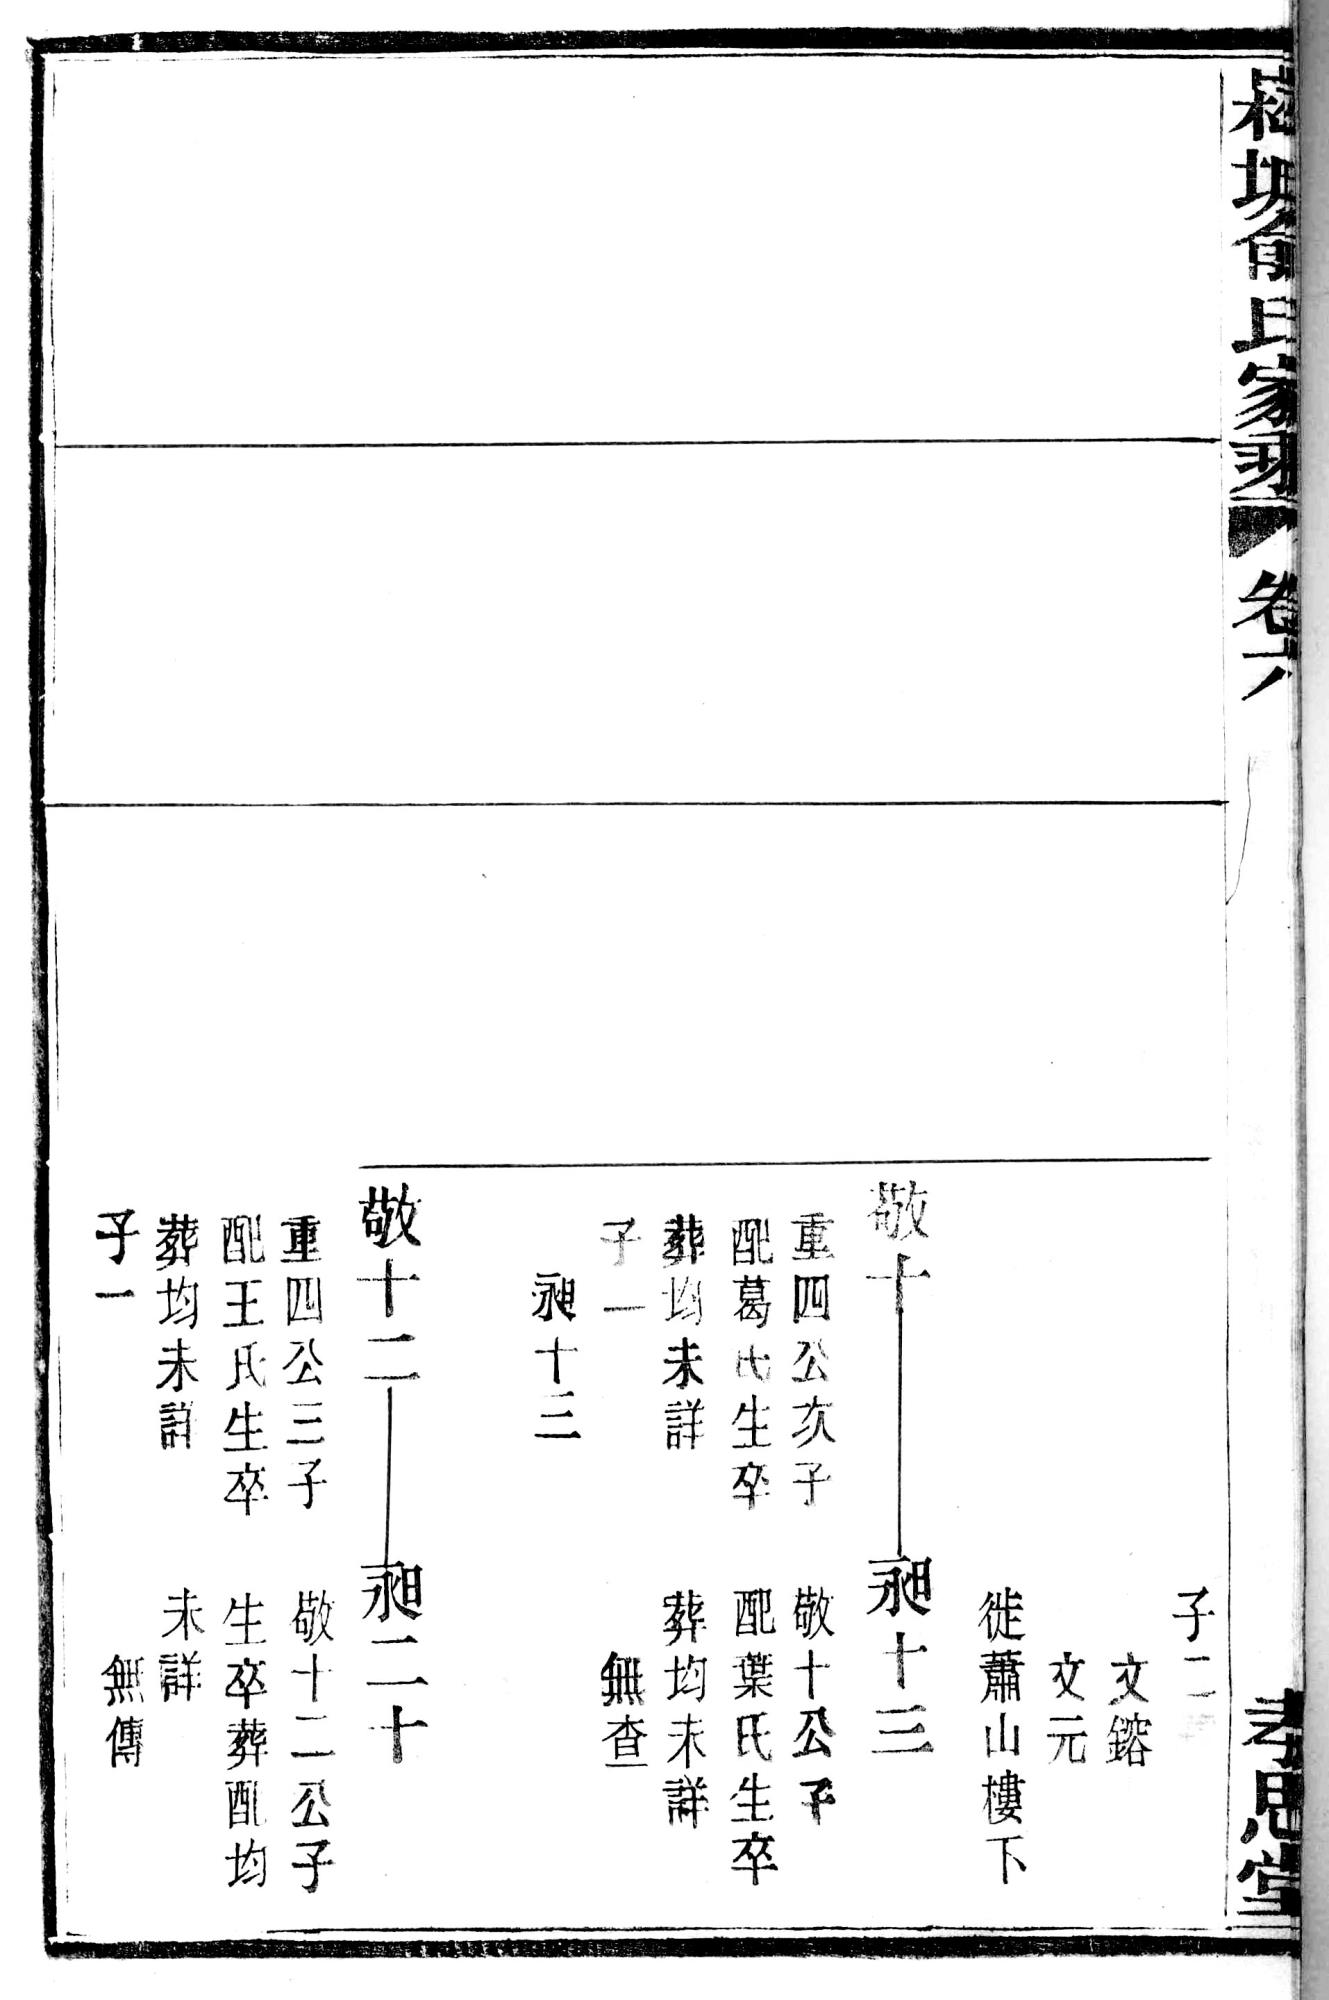 俞氏家乘
卷六
孝思堂
子二
文鎔
文元
徙蕭山樓下
敬十
昶十三
重四公次子
敬十公子
配葛氏生卒
配葉氏生卒
葬均未詳
葬均未詳
子一
無查
昶十三
敬十二
昶二十
重四公三子
敬十二公子
配王氏生卒
生卒葬配均
葬均未詳
未詳
子一
無傳